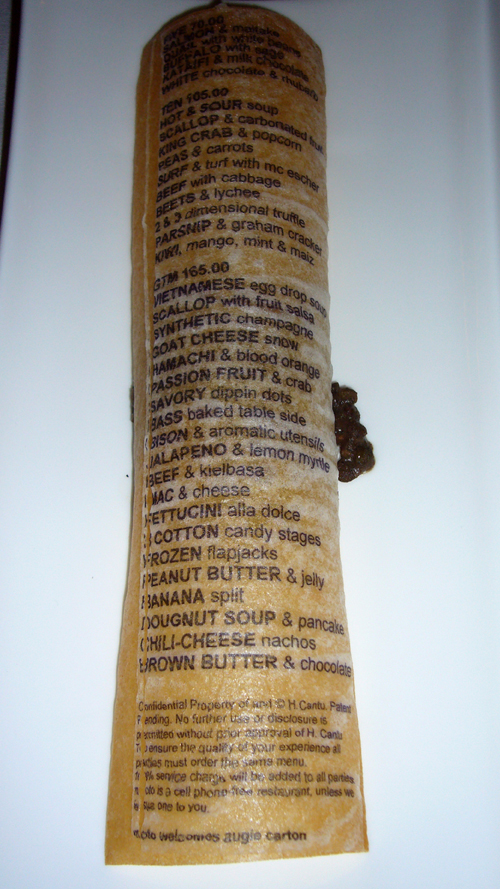 FIVE 70.00
SALMON & maitake
QUAIL with white beans
BUFFALO with sage
KATAIFI & milk chocolate
WHITE chocolate & rhubarb
TEN 105.00
HOT & SOUR soup
SCALLOP & carbonated fruit
KING CRAB & popcorn
PEAS & carrots
SURF & turf with mc escher
BEEF with cabbage
BEETS & lychee
2 & 3 dimensional truffle
PARSNIP & graham cracker
KIWI, mango, mint & maiz
GTM 165.00
VIETNAMESE egg drop soup
SCALLOP with fruit salsa
SYNTHETIC champagne
GOAT CHEESE snow
HAMACHI & blood orange
PASSION FRUIT & crab
SAVORY dippin dots
BASS baked table side
BISON & aromatic utensils
JALAPENO & lemon myrtle
BEEF & kielbasa
MAC & cheese
FETTUCINI alla dolce
3 COTTON candy stages
FROZEN flapjacks
PEANUT BUTTER & jelly
BANANA split
DOUGNUT SOUP & pancake
CHILI-CHEESE nachos
BROWN BUTTER & chocolate
Confidential Property of and © H.Cantu. Patent
Pending. No further use or disclosure is
permitted without prior approval of H. Cantu
To ensure the quality of your experience all
parties must order the same menu.
% service charge will be added to all parties
moto is a cell phone free restaurant, unless we
give one to you.
moto welcomes augie carton